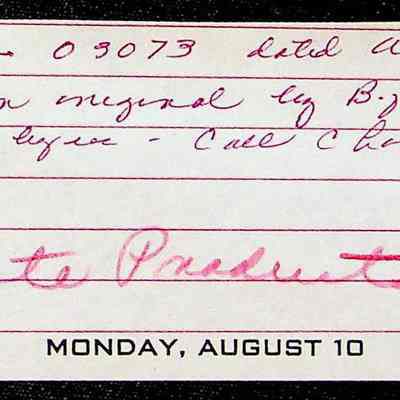 03073 dated
original by B.
- Call Cha
te Product
MONDAY, AUGUST 10